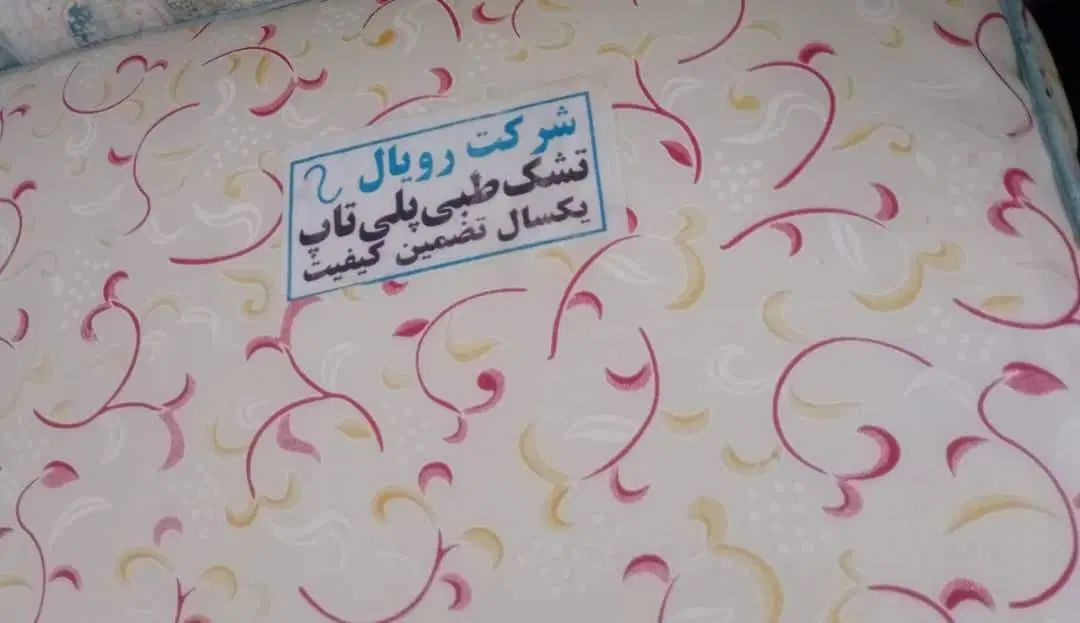 شرکت رویال
تشک طبی پلی تاپ
یکسال تضمین کیفیت